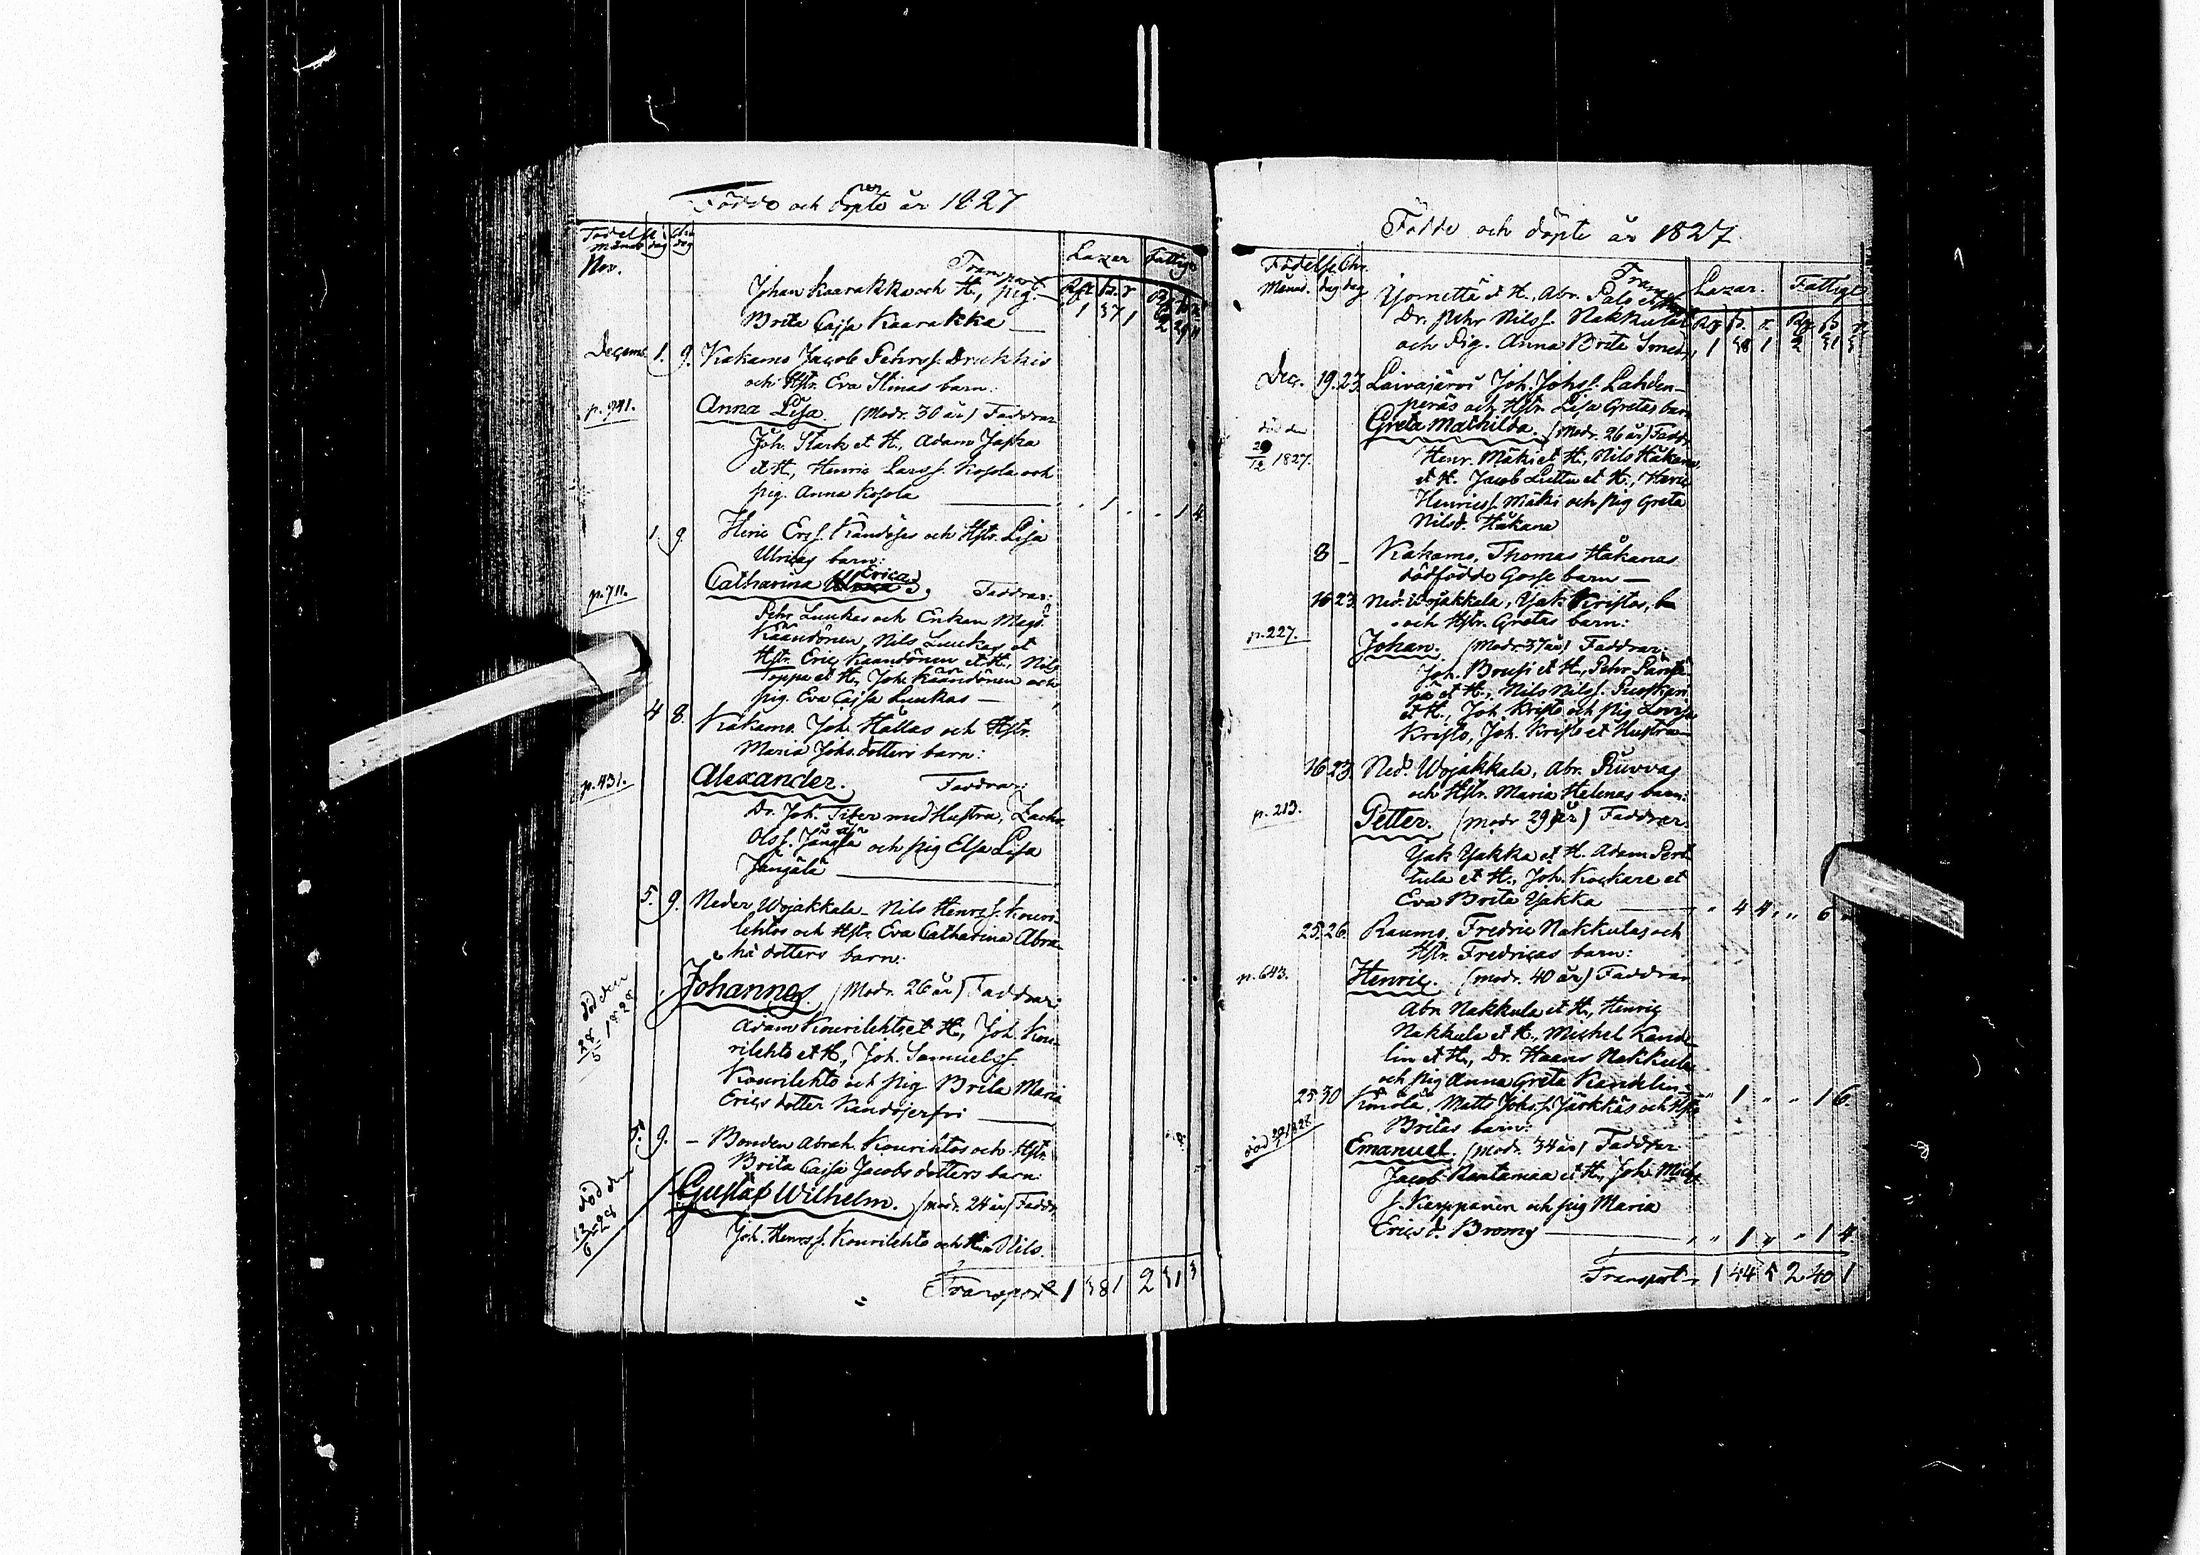 Födde och döpte år 1827
Födelse Chr.
Månad dag dag
Lazar Fattige
Nov.
Transport
Johan Kaarakka och H., pig.
Brita Cajsa Kaarakka
Decemb. 1. 9. Kakamo Jacob Pehrs. Drukkis
och Hstr. Eva Stinas barn:
p. 941. Anna Lisa. (Modr. 30 år) Faddrar
Joh. Stark et H., Adam Japka
et H., Henric Larss. Kosola och
pig. Anna Kosola 1 1 4
1. 9. Henric Ers. och Hstr. Lisa
Ulricas barn:
p. 711. Catharina Erica. Faddrar:
Pehr Luukas och Enkan
Nils Luukas et
Hstr. Eric et H., Nils
Toppa et H., Joh. och
pig. Eva Cajsa Luukas
4 8. Kakamo. Joh. Hallas och Hstr.
Maria Johs. dotters barn:
p. 431. Alexander. Faddrar:
Dr. Joh. med Hustru, Zachr.
Olss. och pig Elsa Lisa
Jangälä
5. 9. Neder Wojakkala Nils Henrs. Kouri-
lehtos och Hstr. Eva Catharina Abra-
hä dotters barn:
död den 28/5 1828
Johannes. (Modr. 26 år) Faddrar:
Adam Kourilehto et H., Joh. Kou-
rilehto et H., Joh. Samuels.
Kourilehto och pig Brita Maria
Erics dotter
5. 9. – Bonden Abrah. Kourilehtos och Hstr.
Brita Cajsa Jacobs dotters barn:
död den 12/6 28
Gustaf Wilhelm. (modr. 24 år) Faddr.
Joh. Henrs. Kourilehto och H. Nils
Transport 1 38 1 2 31 3
Födde och döpte år 1827
Födelse Chr.
Månad. dag dag
Lazar. Fattige
Transport
et H., Abr. Palo et H.
Dr. Pehr Nilss. Nakkula
och Pig. Anna Brita 1 38 1 2 31 3
Dec. 19. 23. Laivajärvi Joh. Johss. Lahden-
peräs och Hstr. Lisa Gretas barn
död den 29/12 1827.
Greta Mathilda. (Modr. 26 år) Faddr.
Henr. Mäki et H., Nils Håkana
et H. Jacob Luttu et H.,
Henrics. Mäki och pig Greta
Nilsd. Håkana
8 – Kakamo, Thomas Håkanas
dödfödde Gosse barn —
16 23 Ned. Wojakkala,
och Hstr. Gretas barn:
p. 227. Johan. (Modr. 37 år) Faddrar:
Joh. et H., Pehr
et H., Nils Nilss.
et H., Joh. Kristo och pig Lovisa
Kristo, Joh. Kristo et Hustru
16 23. Ned. Wojakkala, Abr. Ruvvas
och Hstr. Maria Helenas barn:
p. 213. Petter. (modr 29 år) Faddrar:
Yak Yakka et H. Adam Pert-
tula et H., Joh. et
Eva Brita Yakka 4 4 6
25. 26. Raumo, Fredric Nakkulas och
Hstr. Fredricas barn:
p. 643. Henric. (modr. 40 år) Faddrar
Abr. Nakkula et H., Henric
Nakkula et H., Michel Kande-
lin et H., Dr. Nakkula
och pig Anna Greta Kandelin 1 1 6.
25 30 Könölä, Matts Johss. Järkkäs och Hstr.
Britas barn:
död
Emanuel. (modr. 34 år) Faddrar
Jacob Rantamaa et H., Joh. Michs
s. Karppanen och pig Maria
Erics d. Bromy 1 1 4.
Transport 1 44 5 2 40 1